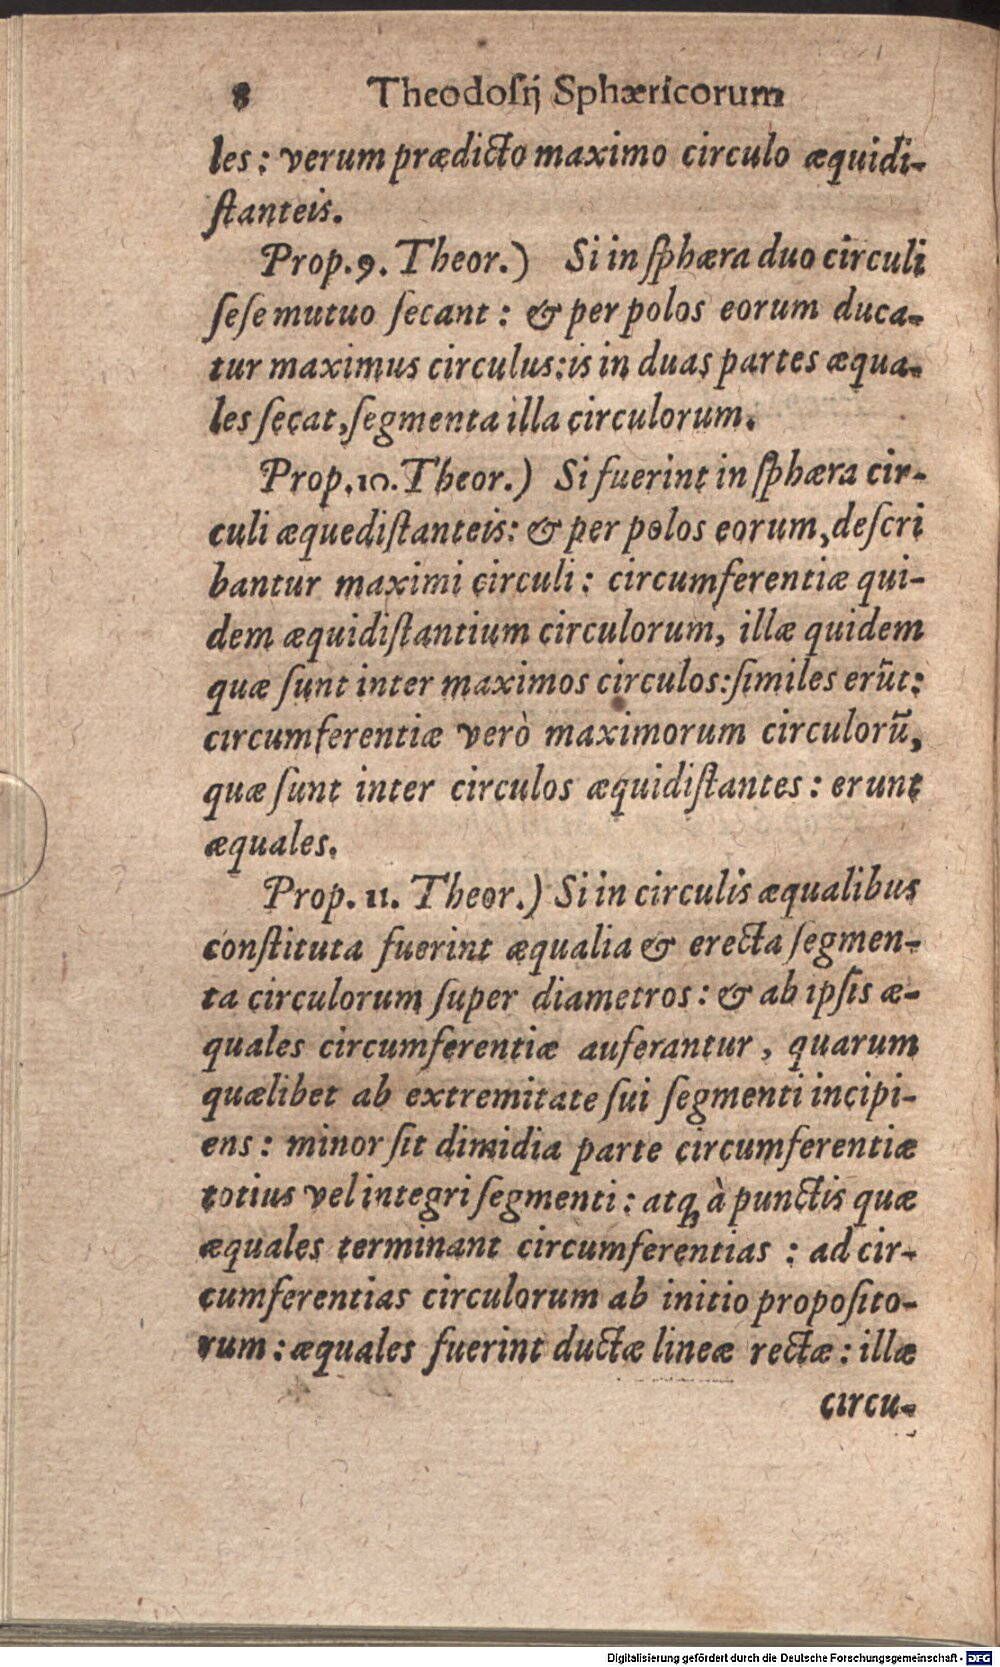 8 Theodoſij Sphæricorum
les: verum prædicto maximo circulo æquidi-
ſtanteis.
Prop. 9. Theor.) Si in ſphæra duo circuli
ſeſe mutuo ſecant: & per polos eorum duca-
tur maximus circulus: is in duas partes æqua-
les ſecat, ſegmenta illa circulorum.
Prop. 10. Theor.) Si fuerint in ſphæra cir-
culi æquediſtanteis: & per polos eorum, deſcri
bantur maximi circuli: circumferentiæ qui-
dem æquidiſtantium circulorum, illæ quidem
quæ ſunt inter maximos circulos: ſimiles erūt:
circumferentiæ verò maximorum circulorū,
quæ ſunt inter circulos æquidiſtantes: erunt
æquales.
Prop. 11. Theor.) Si in circulis æqualibus
conſtituta fuerint æqualia & erecta ſegmen-
ta circulorum ſuper diametros: & ab ipſis æ-
quales circumferentiæ auferantur, quarum
quælibet ab extremitate ſui ſegmenti incipi-
ens: minor ſit dimidia parte circumferentiæ
totius vel integri ſegmenti: atq; à punctis quæ
æquales terminant circumferentias: ad cir-
cumferentias circulorum ab initio propoſito-
rum: æquales fuerint ductæ lineæ rectæ: illæ
circu-
Digitalisierung gefördert durch die Deutsche Forschungsgemeinschaft - DFG